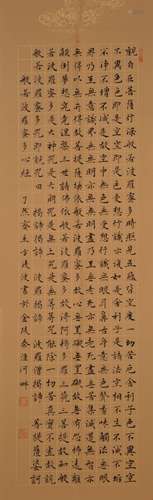 觀自在菩薩行深般若波羅蜜多時照見五蘊皆空度一切苦厄舍利子色不異空空
不異色色即是空空即是色受想行識亦復如是舍利子是諸法空相不生不滅不垢
不淨不增不減是故空中無色無受想行識無眼耳鼻舌身意無色聲香味觸法無眼
界乃至無意識界無無明亦無無明盡乃至無老死亦無老死盡無苦集滅道無智亦
無得以無所得故菩提薩埵依般若波羅蜜多故心無罣礙無罣礙故無有恐怖遠離
顛倒夢想究竟涅槃三世諸佛依般若波羅蜜多故得阿耨多羅三藐三菩提故知般
若波羅蜜多是大神咒是大明咒是無上咒是無等等咒能除一切苦真實不虛故說
般若波羅蜜多咒即說咒曰 揭諦揭諦 波羅揭諦 波羅僧揭諦 菩提薩婆訶
般若波羅蜜多心經 了然齋主方波書於金陵秦淮河畔